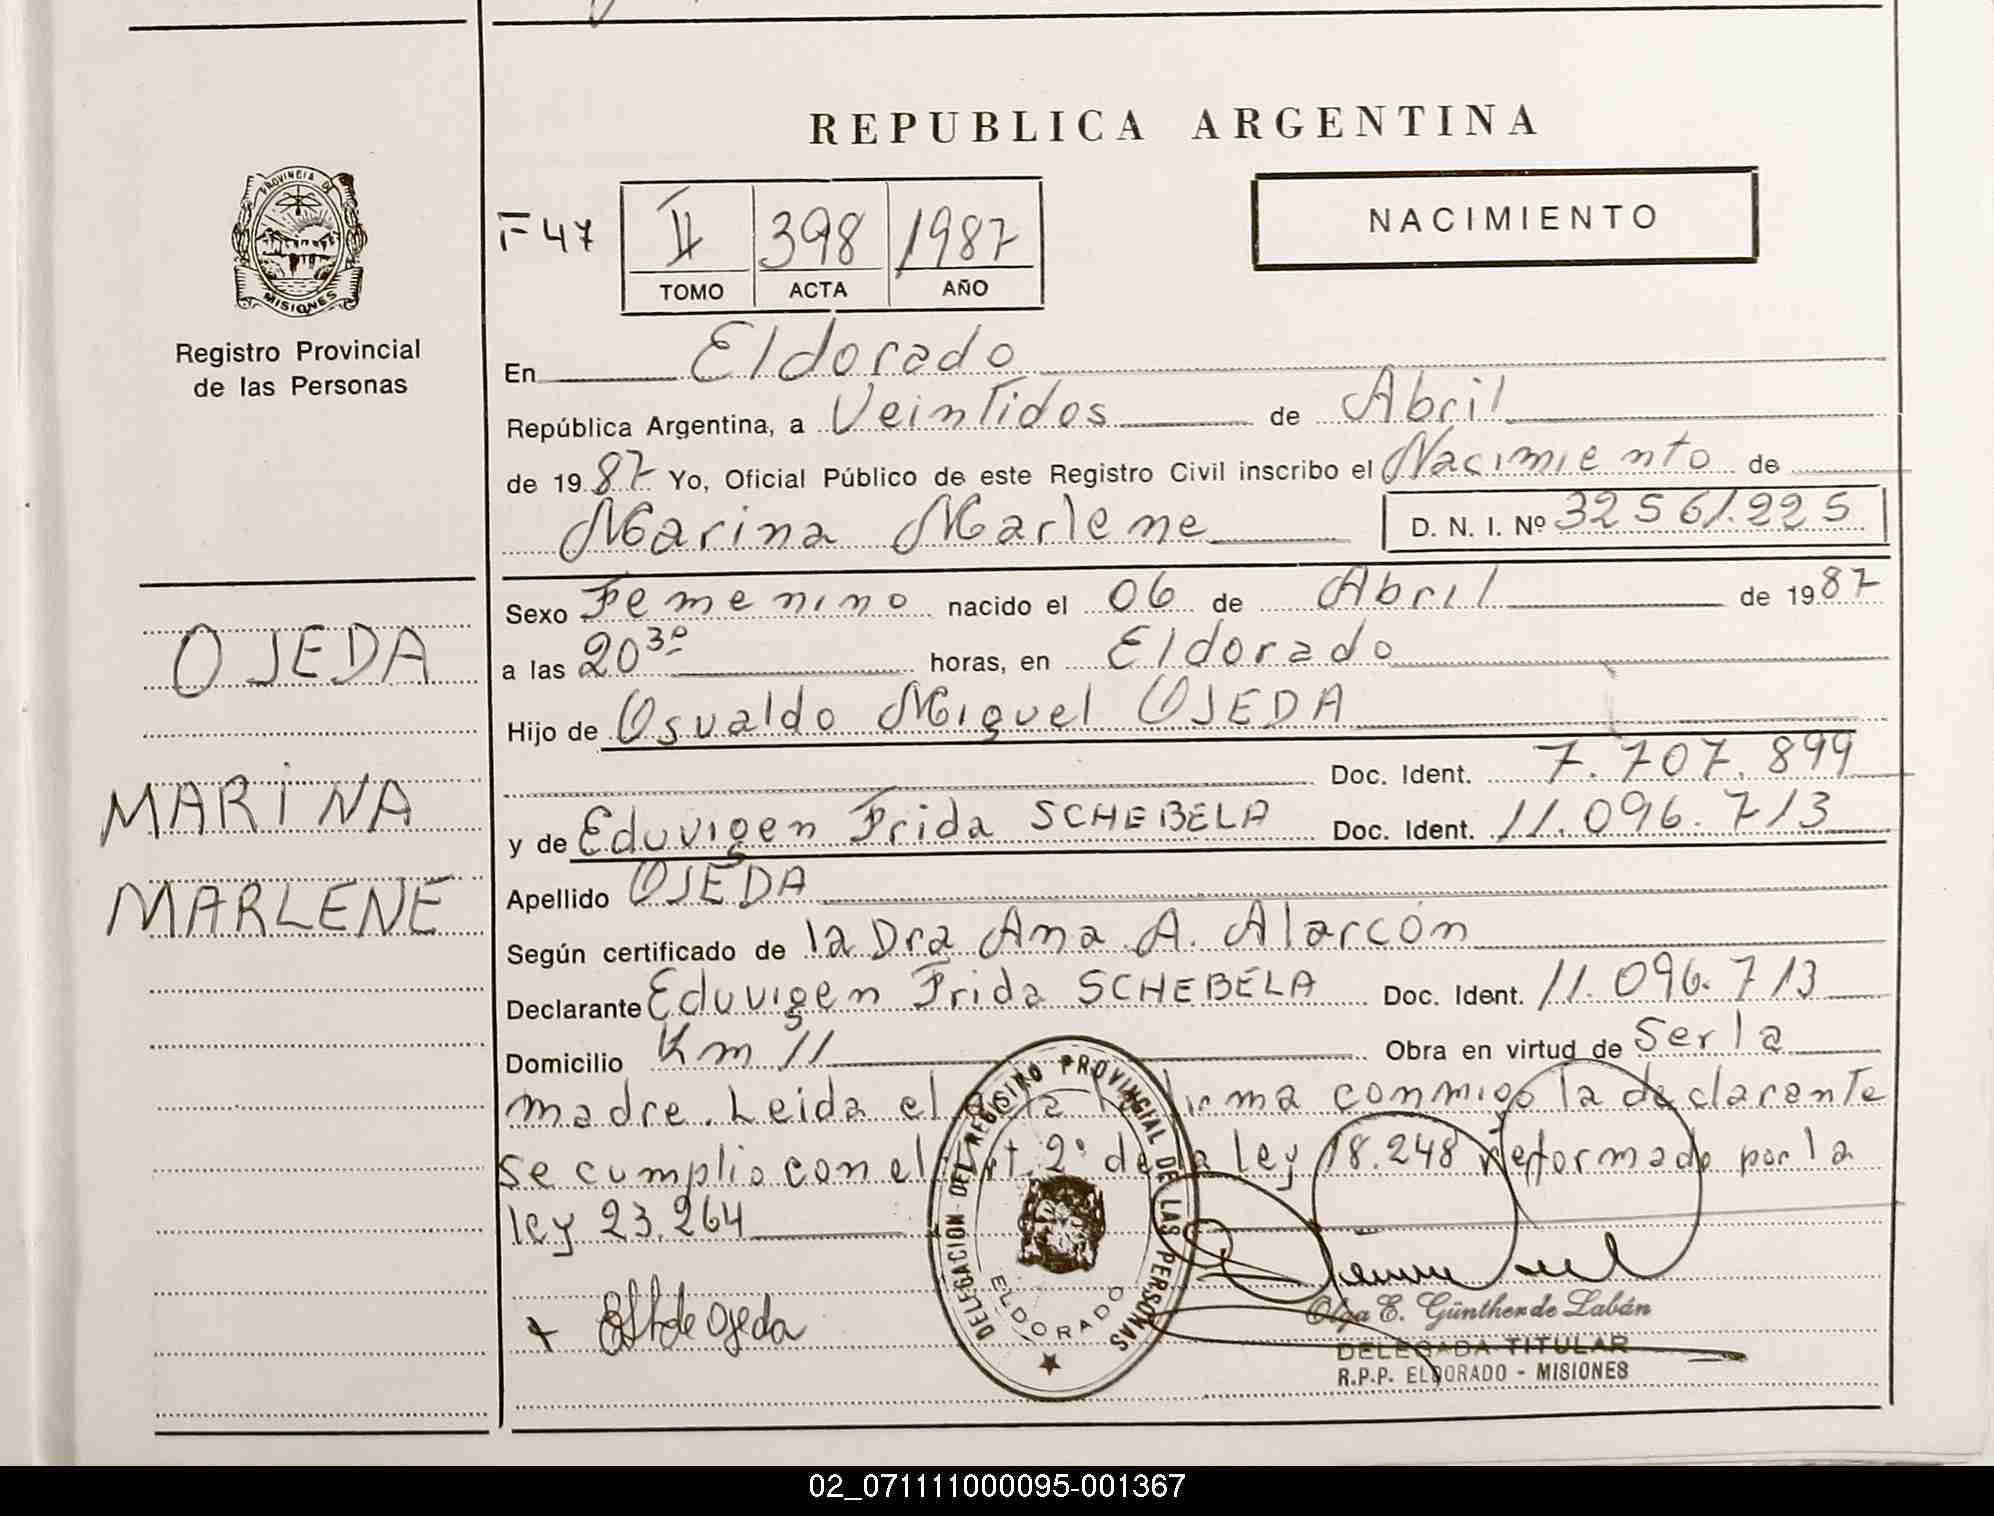 REPUBLICA ARGENTINA
PROVINCIA DE
MISIONES
Registro Provincial
de las Personas
F 47
II 398 1987
TOMO ACTA AÑO
NACIMIENTO
En Eldorado
República Argentina, a Veintidos de Abril
de 1987 Yo, Oficial Público de este Registro Civil inscribo el Nacimiento de
Marina Marlene D. N. I. Nº 32 561.225
Sexo Femenino nacido el 06 de Abril de 1987
a las 20 30 horas, en Eldorado
Hijo de Osvaldo Miguel OJEDA
Doc. Ident. 7.707.899
y de Eduvigen Frida SCHEBELA Doc. Ident. 11.096.713
Apellido OJEDA
Según certificado de la Dra Ana A. Alarcón
Declarante Eduvigen Frida SCHEBELA Doc. Ident. 11.096.713
Domicilio Km 11 Obra en virtud de Ser la
madre. Leida el conmigo la declarante
se cumplio con el Art. 2º de la ley 18.248 reformado por la
ley 23.264
OJEDA
MARINA
MARLENE
de Ojeda
DELEGACION DEL REGISTRO PROVINCIAL DE LAS PERSONAS
ELDORADO
Olga E. Günther de Labán
DELEGADA TITULAR
R.P.P. ELDORADO - MISIONES
02_071111000095-001367